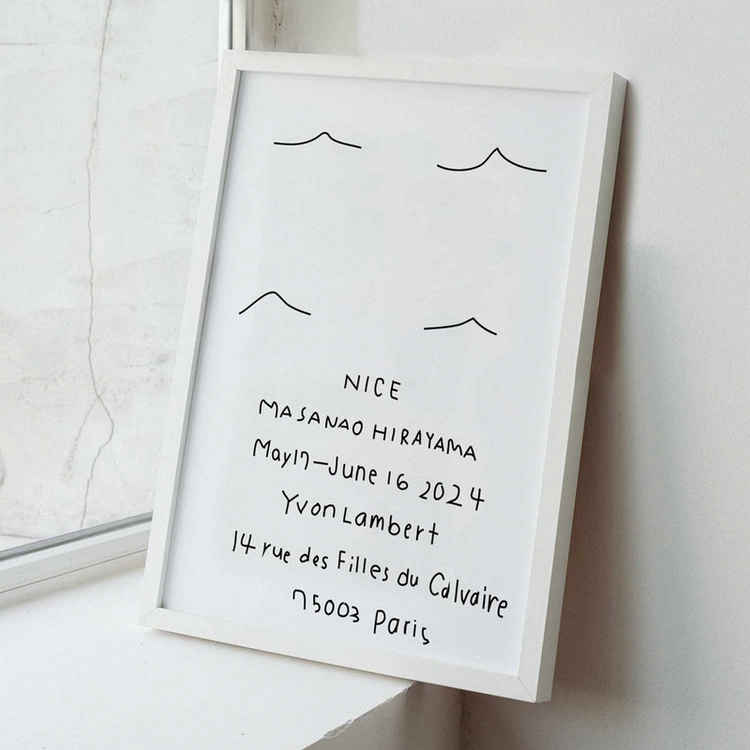 NICE
MASANAO HIRAYAMA
May17—June 16 2024
Yvon Lambert
14 rue des Filles du Calvaire
75003 Paris